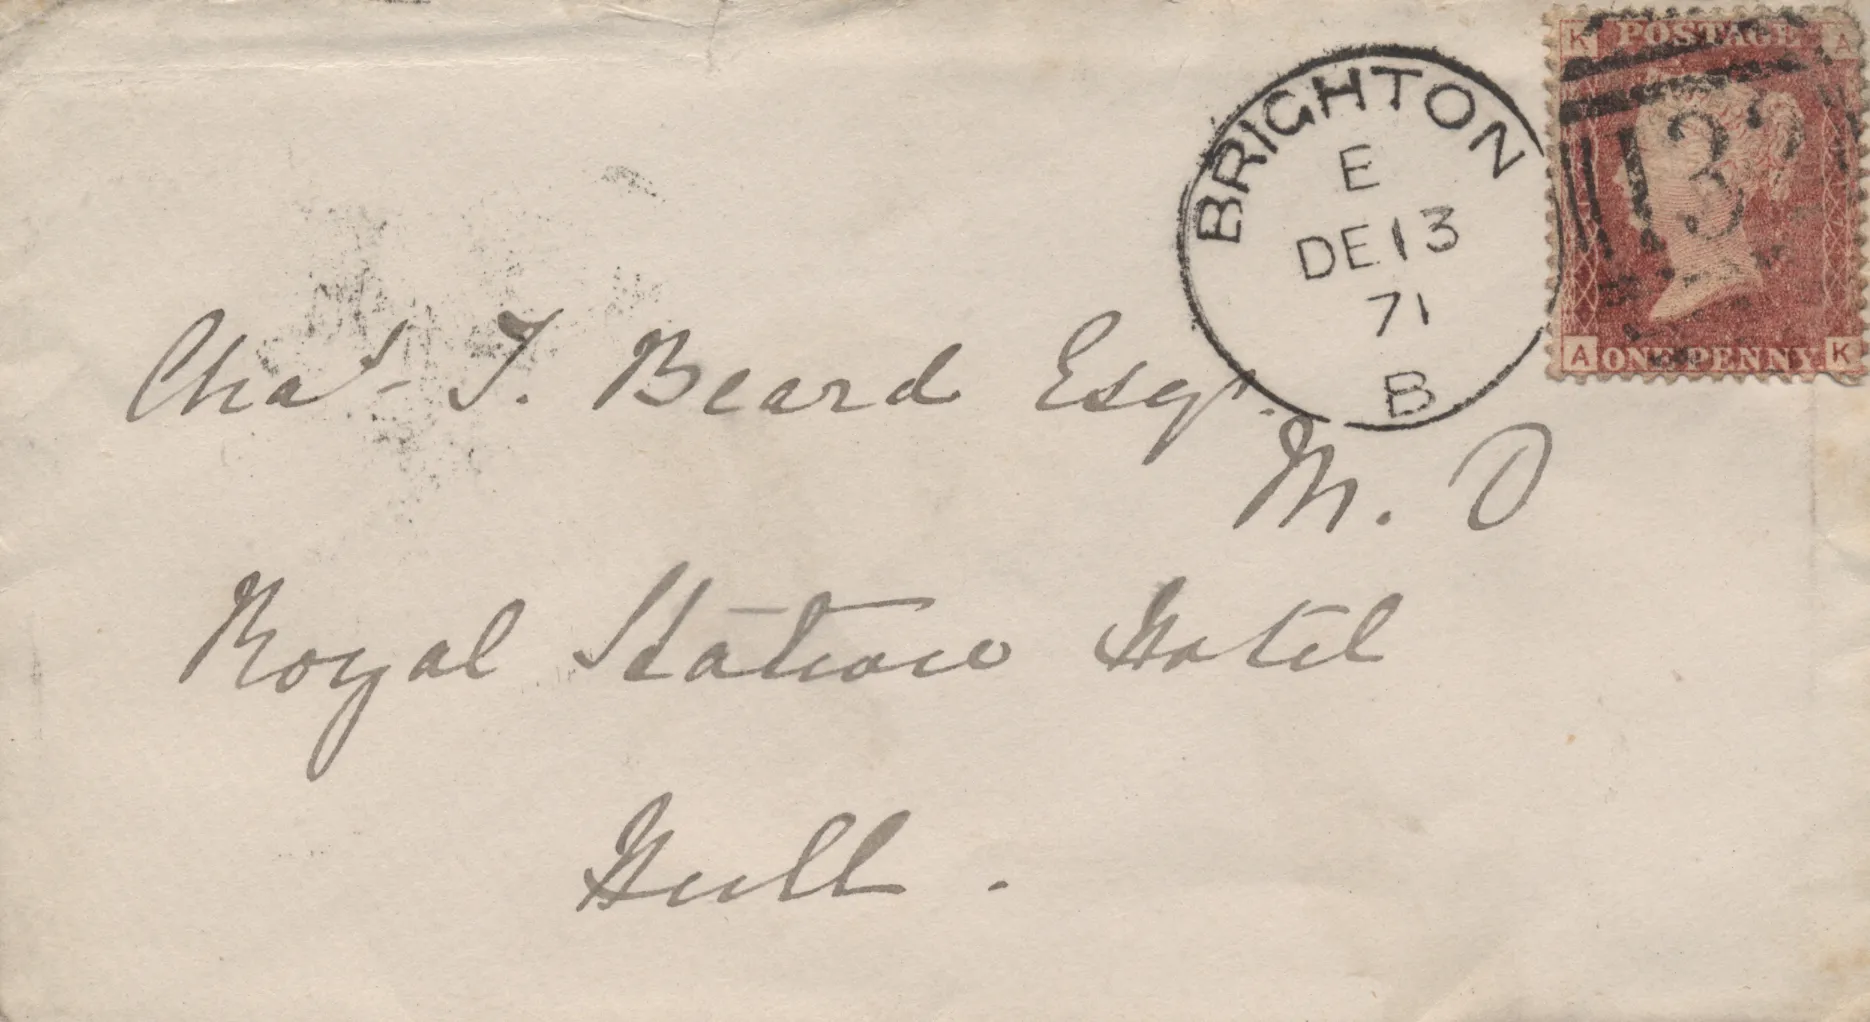 K POSTAGE A
132
A ONE PENNY K
BRIGHTON
E
DE 13
71
B
Chas. T. Beard Esqr.
M. D
Royal Station Hotel
Hull.